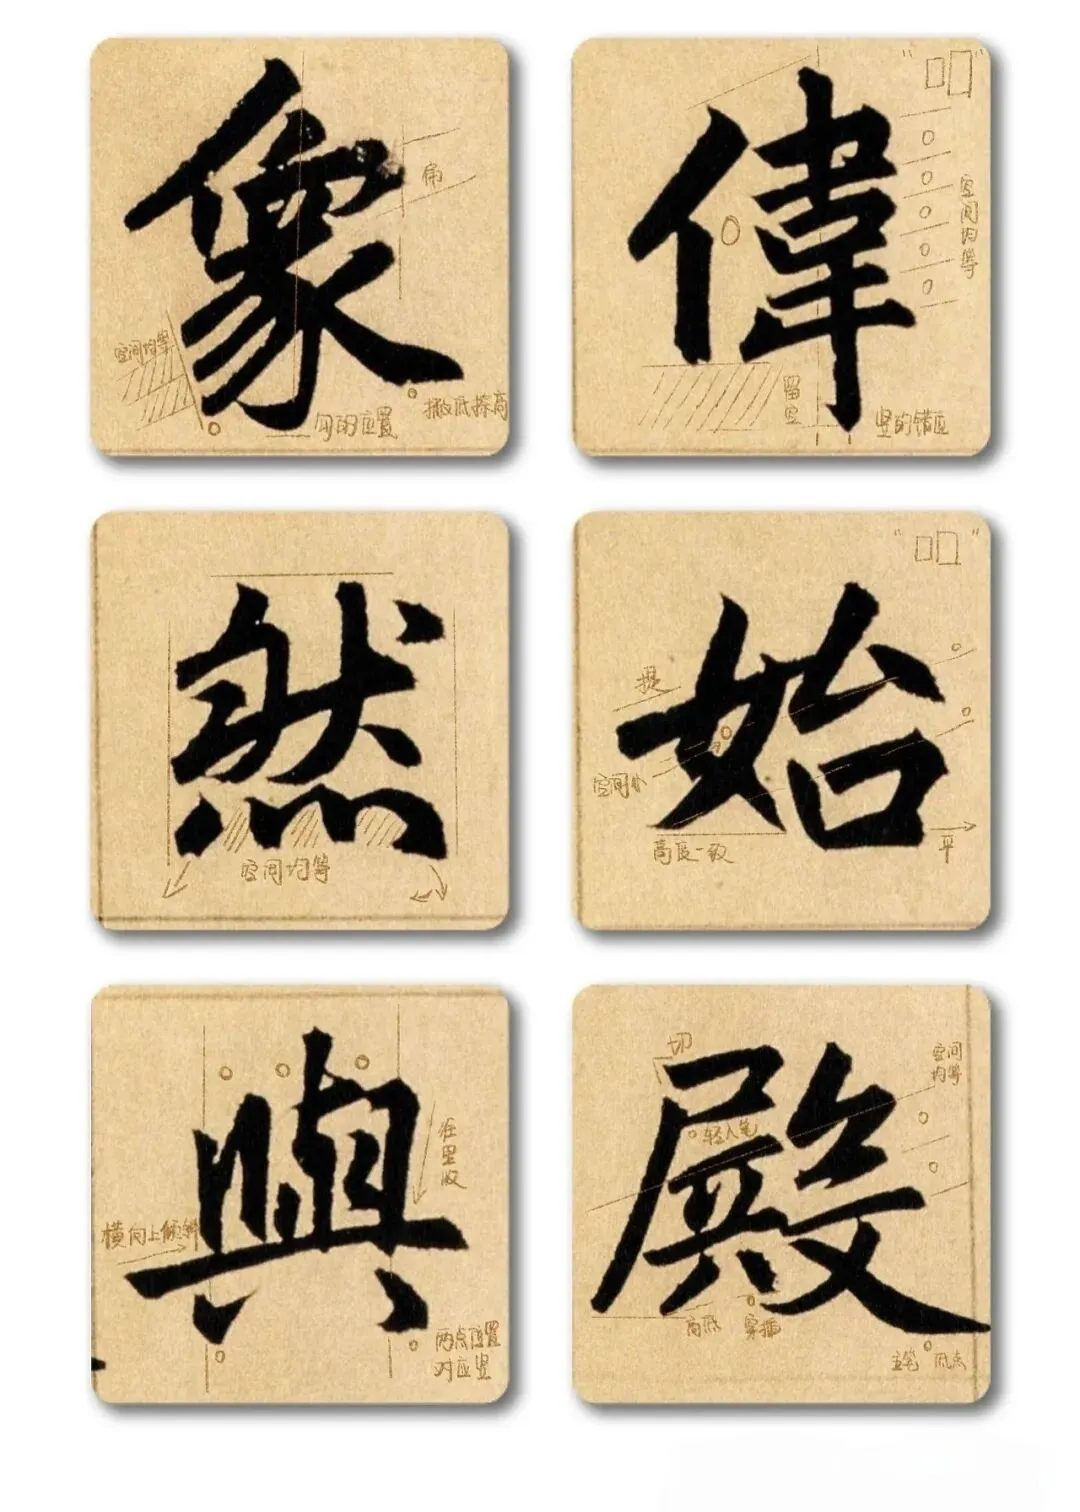 象
扁
空间均等
勾的位置
撇低捺高
偉
空间均等
留空
竖的错位
然
空间均等
始
提
空间小
高度一致
平
與
往里收
横向上倾斜
两点位置
对应竖
殿
切
轻入笔
空间
均等
高低
穿插
主笔
低点